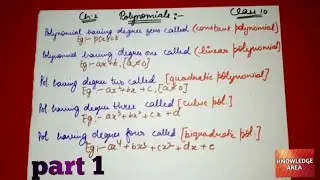 Ch-2 Polynomials:- Class 10
Polynomial having degree zero called (constant polynomial)
Eg:- p(x)=k
Polynomial having degree one called (linear polynomial)
Eg:- ax+b, [a≠0]
Pol. having degree two called [quadratic polynomial]
Eg:- ax²+bx+c, [a≠0]
Pol. having degree three called [cubic pol.]
Eg:- ax³+bx²+cx+d
Pol having degree four called [biquadratic pol.]
Eg:- ax⁴+bx³+cx²+dx+e
part 1
KNOWLEDGE
AREA